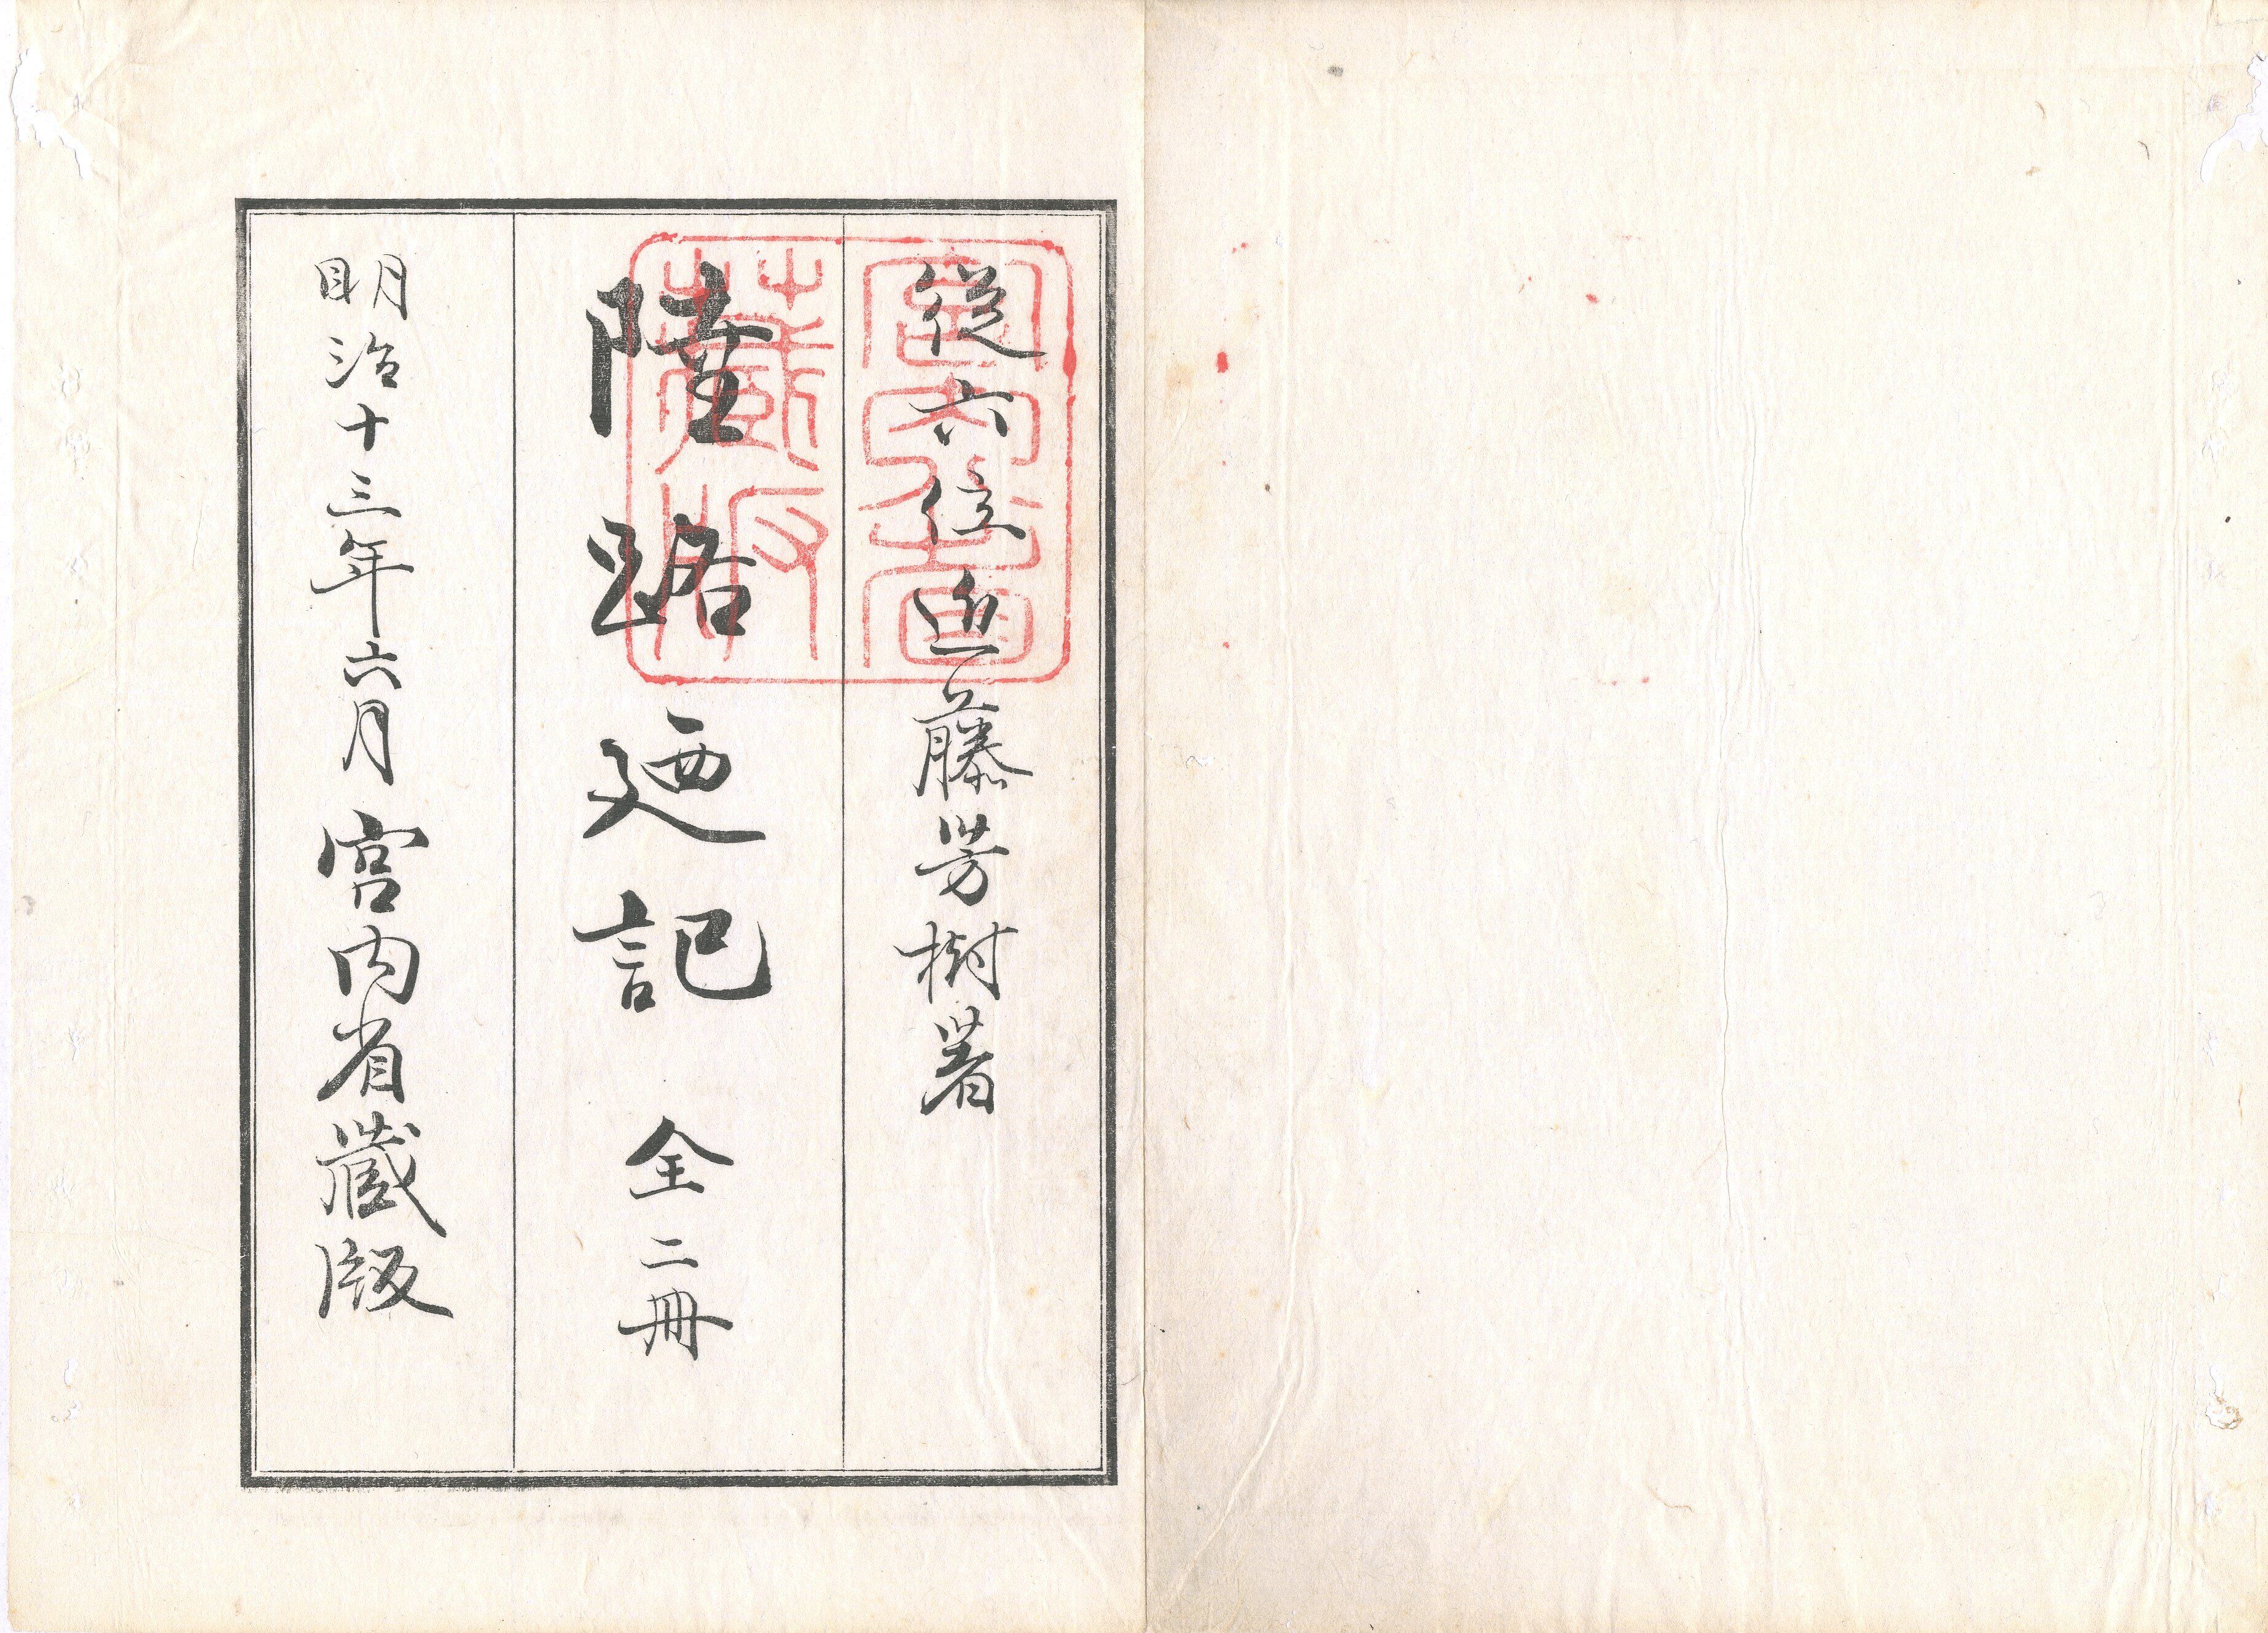 從六位近藤芳樹著
陸路廼記 全二冊
明治十三年六月 宮内省蔵版
宮内省
藏板